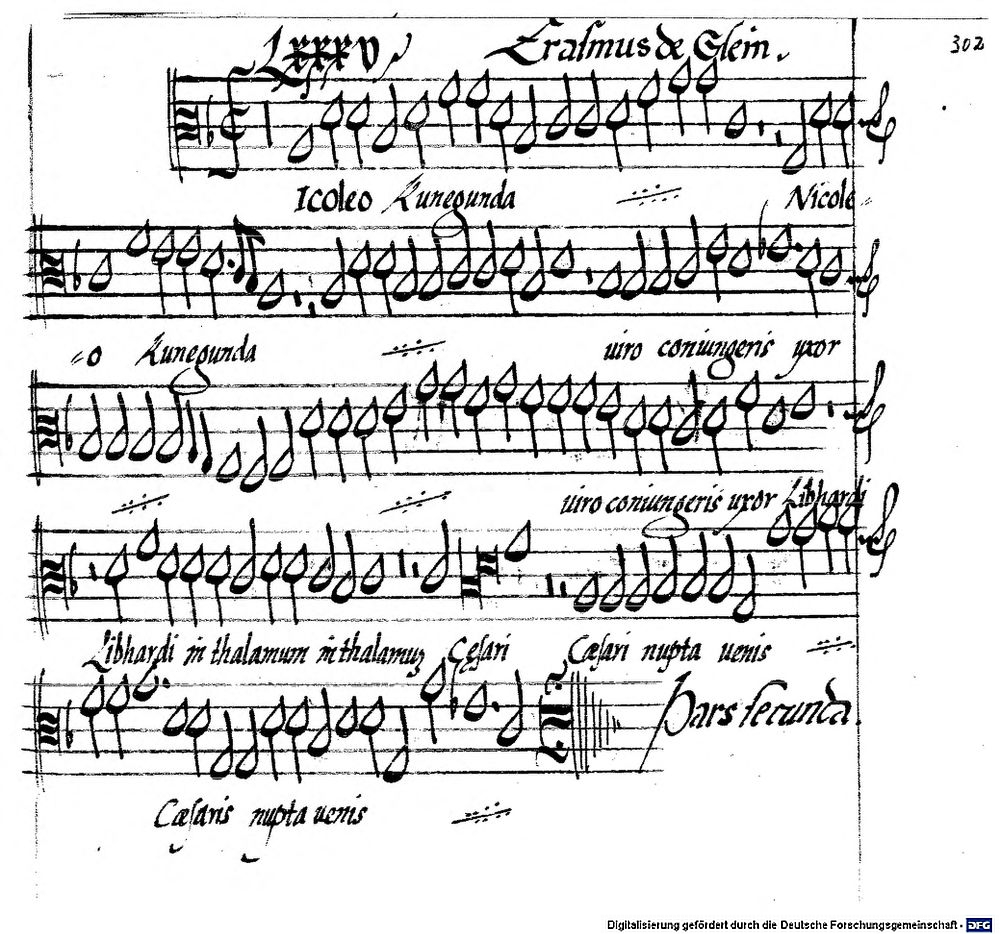 LXXXV Erasmus de Glein. 302
Icoleo Kunegunda Nicole=
=o Kunegunda uiro coniungeris uxor
uiro coniungeris uxor Libhardi
Libhardi in thalamum in thalamuʒ Cęsari Cæsari nupta uenis
Pars secunda.
Cæsaris nupta uenis
Digitalisierung gefördert durch die Deutsche Forschungsgemeinschaft - DFG